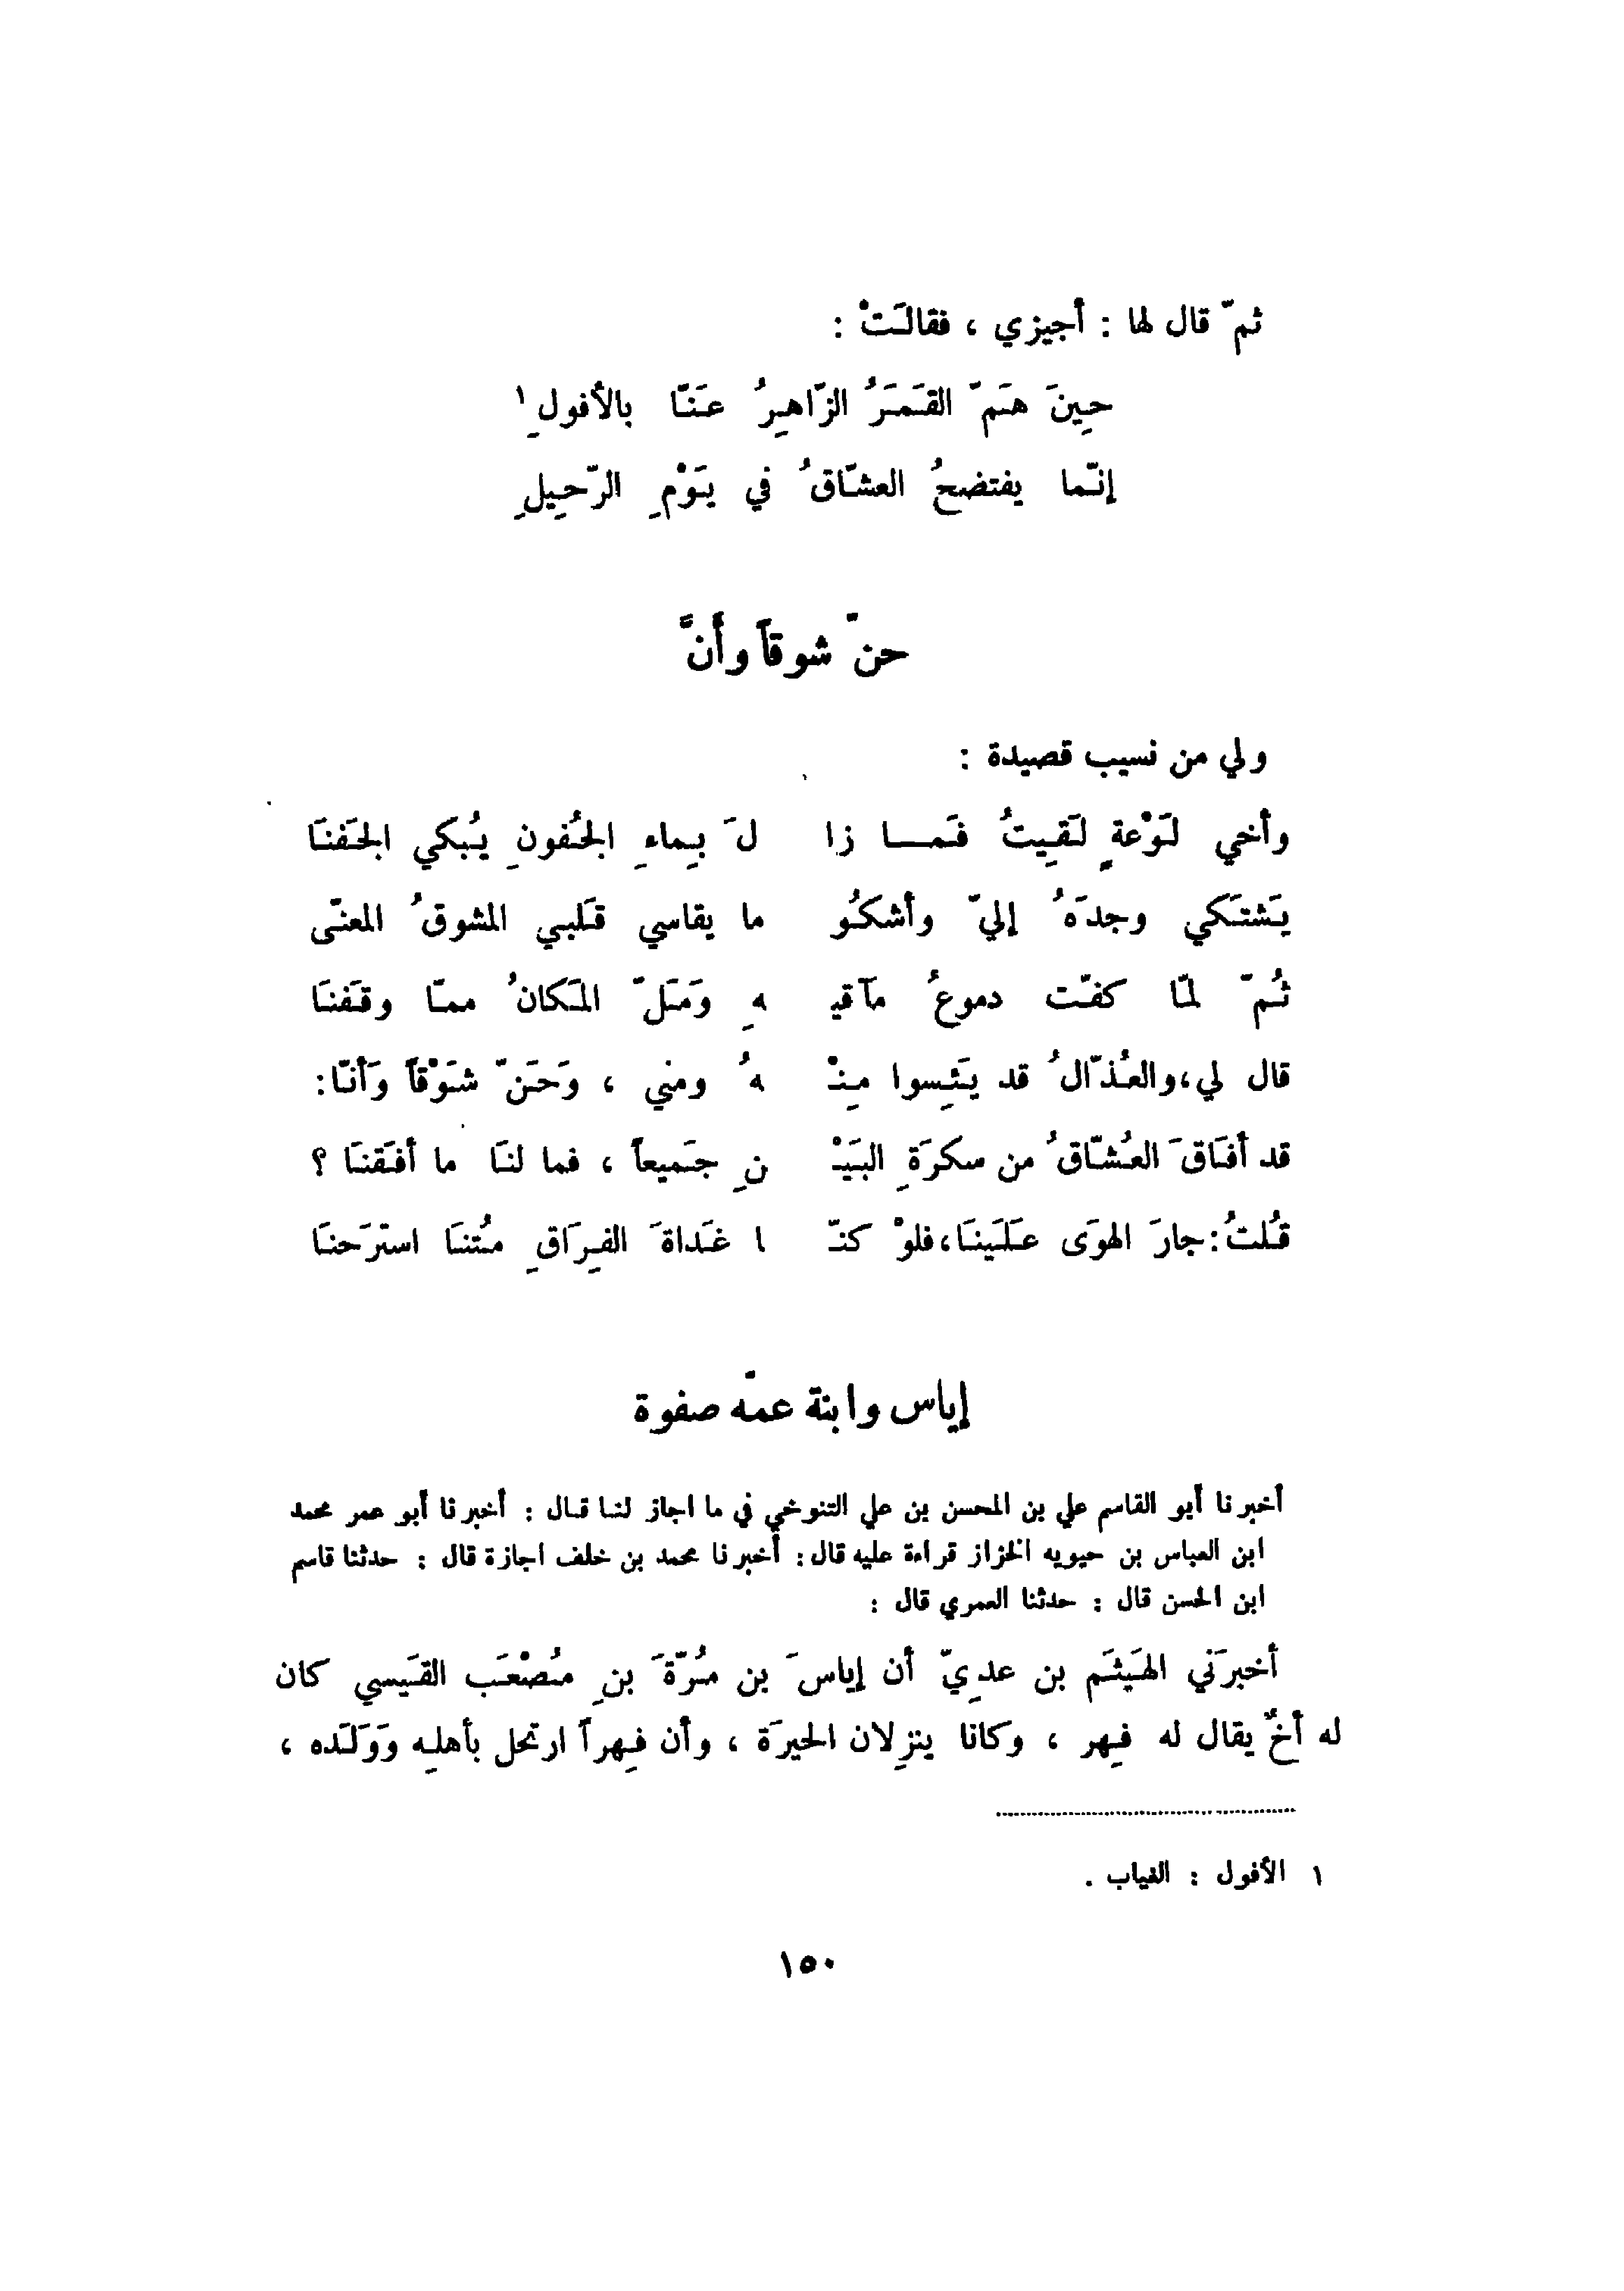 ثمّ قال لها : أجيزي ، فقالَتْ :
حِينَ هَمّ القَمَرُ الزّاهِرُ عَنّا بالأفولِ ١
إنّما يفتضحُ العشّاقُ في يَوْمِ الرّحِيلِ
حنّ شوقاً وأنَّ
ولي من نسيب قصيدة :
وأخي لَوْعةٍ لَقِيتُ فَمـا زا لَ بِماءِ الجُفونِ يُبكي الجَفنَا
يَشتَكي وجدَهُ إليّ وأشكُو ما يقاسي قَلبي المشوقُ المعنّى
ثُمّ لمّا كفّت دموعُ مآقيـ ـهِ وَمَلّ المَكانُ ممّا وقَفنَا
قال لي،والعُذّالُ قد يَئِسوا مِنْـ ـهُ ومني ، وَحَنّ شَوْقاً وَأنّا:
قد أفَاقَ العُشّاقُ من سكرَةِ البَيْـ ـنِ جَميعاً ، فما لنَا ما أفَقنَا ؟
قُلتُ:جارَ الهوَى عَلَينَا،فلوْ كنّـ ـا غَداةَ الفِرَاقِ مُتنَا استرَحنَا
إياس وابنة عمّه صفوة
أخبرنا أبو القاسم علي بن المحسن بن علي التنوخي في ما اجاز لنـا قـال : أخبرنا أبو عمر محمد
ابن العباس بن حيويه الخزاز قراءة عليه قال: أخبرنا محمد بن خلف اجازة قال : حدثنا قاسم
ابن الحسن قال : حدثنا العمري قال :
أخبرَني الهَيثَم بن عدِيّ أن إياسَ بن مُرّةَ بنِ مُصْعَب القَيسي كان
له أخٌ يقال له فِهر ، وكانا ينزِلان الحيرَة ، وأن فِهراً ارتحل بأهلِه وَوَلَده ،
١ الأفول : الغياب .
١٥٠